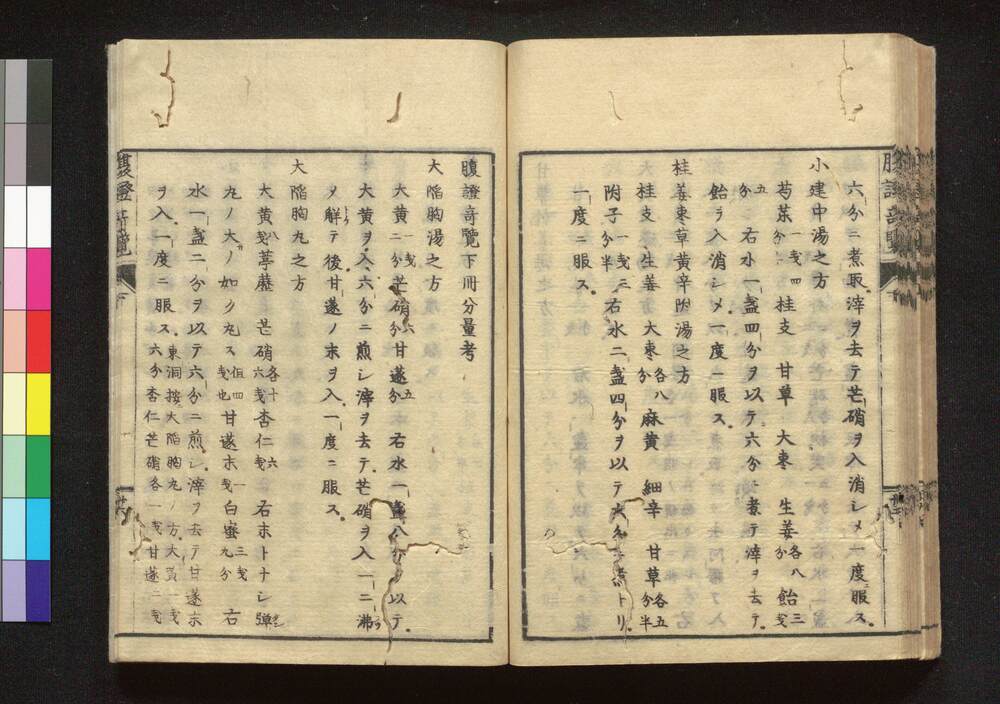 六分ニ煮取滓ヲ去テ芒硝ヲ入消シメ一度服ス
小建中湯之方
芍薬一戔四分桂支 甘草 大棗 生姜各八分飴三戔
五分右水一盞四分ヲ以テ六分ニ煮テ滓ヲ去テ
飴ヲ入消シメ一度一服ス
桂姜棗草黄辛附湯之方
桂支 生姜 大棗各八分麻黄 細辛 甘草各五分半
附子一戔三分半右水二盞四分ヲ以テ六分ニ トリ
一度ニ服ス
腹證奇覧下冊分量考
大陥胸湯之方
大黄一戔二分芒硝六分甘遂五分右水一盞八分ヲ以テ
大黄ヲ入六分ニ煎シ滓ヲ去テ芒硝ヲ入一二沸
〆解テ後甘遂ノ末ヲ入一度ニ服ス
大陥胸丸之方
大黄八戔葶藶 芒硝各十六戔杏仁六戔 右末トナシ弾
丸ノ大ノ如ク丸ス但四戔也甘遂末一戔白蜜三戔九分 右
水一盞二分ヲ以テ六分ニ煎シ滓ヲ去テ甘遂末
ヲ入一度ニ服ス東洞按大陥胸丸ノ方大黄一戔六分杏仁芒硝各一戔甘遂二戔
腹證奇覧
下